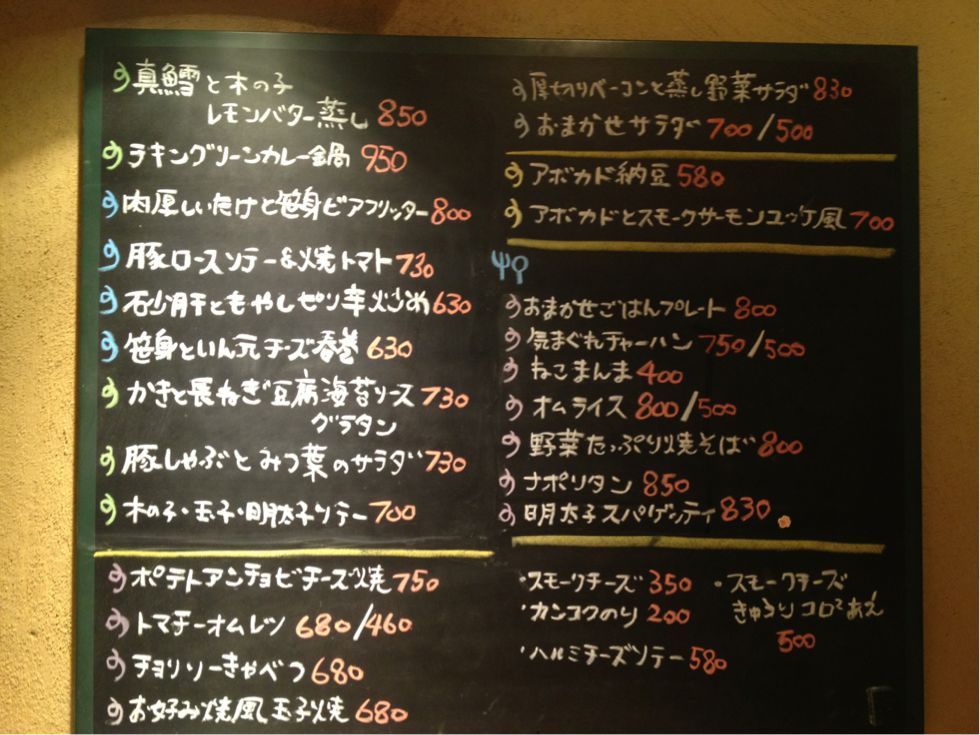 真鱈と木の子
レモンバター蒸し 850
チキングリーンカレー鍋 950
肉厚しいたけと笹身ビアフリッター 800
豚ロースソテー&焼トマト 730
砂肝ともやしピリ辛炒め 630
笹身といん元チーズ春巻 630
かきと長ねぎ豆腐海苔ソース 730
グラタン
豚しゃぶとみつ葉のサラダ 730
木の子・玉子・明太子ソテー 700
ポテトアンチョビチーズ焼 750
トマチーオムレツ 680/460
チョリソーきゃべつ 680
お好み焼風玉子焼 680
厚切りベーコンと蒸し野菜サラダ 830
おまかせサラダ 700/500
アボカド納豆 580
アボカドとスモークサーモンユッケ風 700
おまかせごはんプレート 800
気まぐれチャーハン 750/500
ねこまんま 400
オムライス 800/500
野菜たっぷり焼そば 800
ナポリタン 850
明太子スパゲッティ 830
・スモークチーズ 350
・カンコクのり 200
・ハルミチーズソテー 580
・スモークチーズ
きゅうりコロコロあえ
500